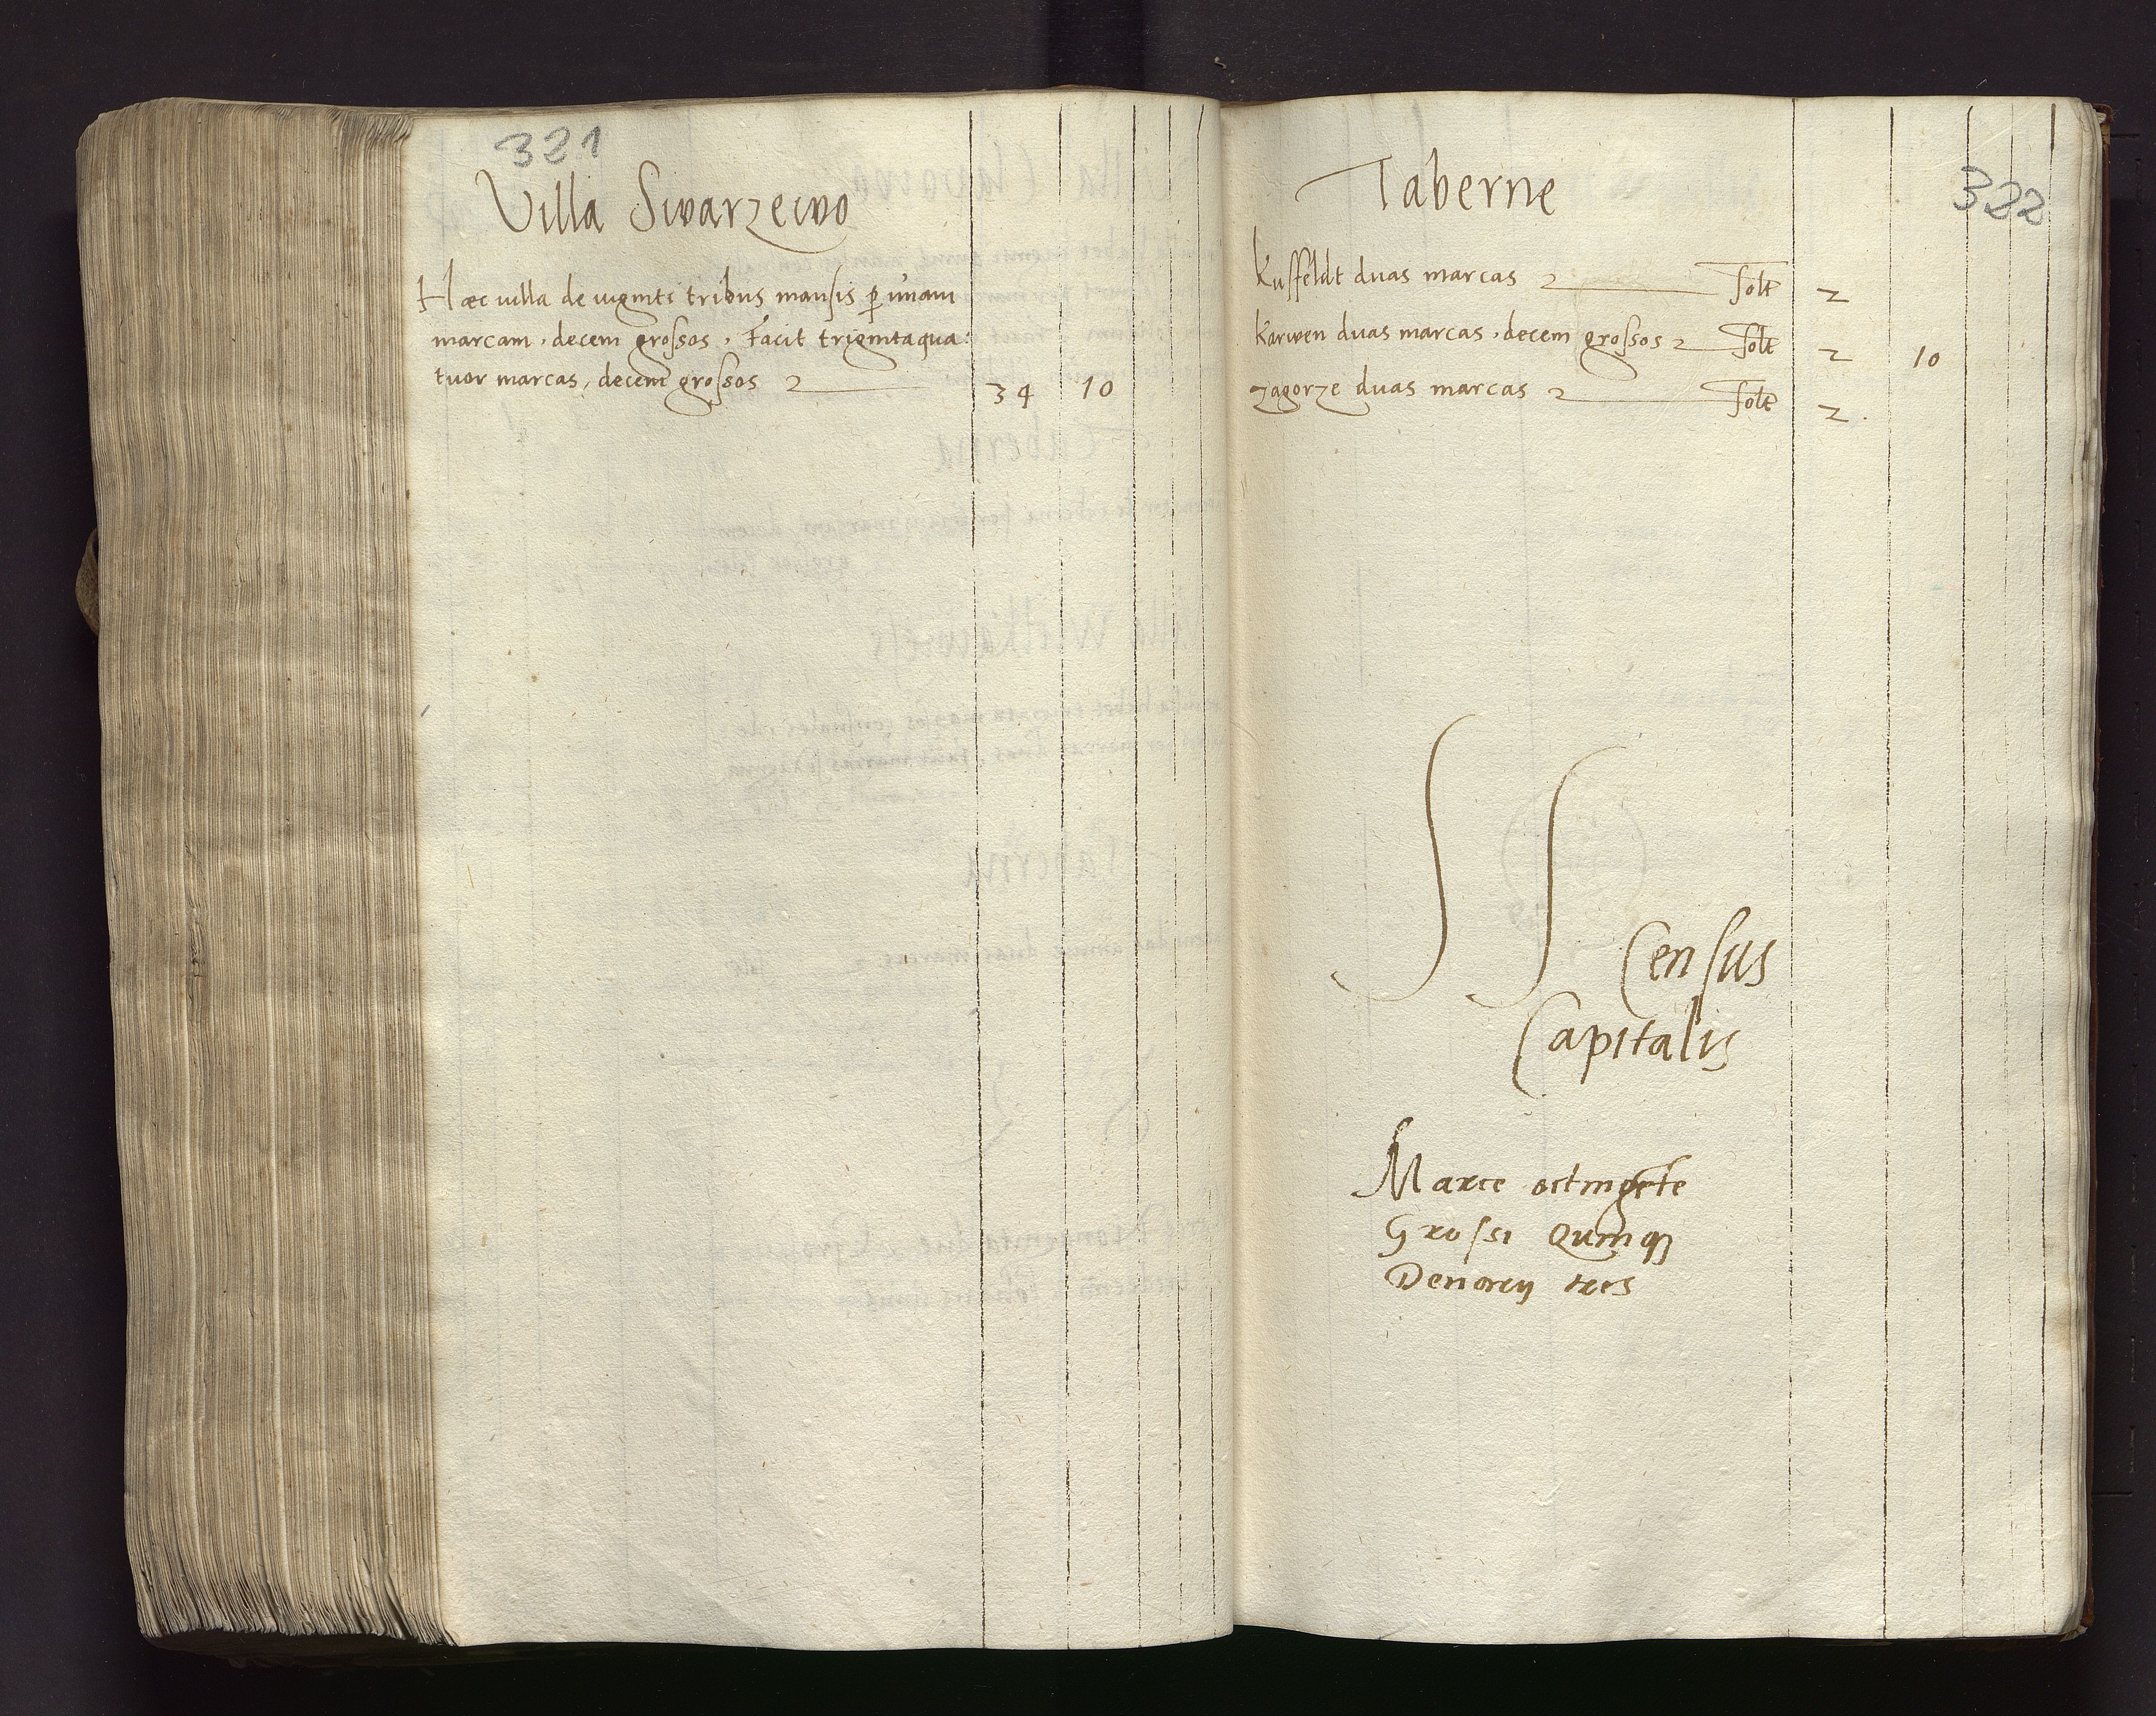 321
Villa Swarzewo
Hæc villa de viginti tribus mansis p unam
marcam, decem grossos, Facit trigintaqua
tuor marcas, decem grossos 34 10
322
Taberne
Kussfeldt duas marcas solt 2
Karwen duas marcas, decem grossos solt 2 10
Zagorze duas marcas solt 2
SS Census
Capitalis
Marce octingēte
Grossi Quinqz
Denarij tres